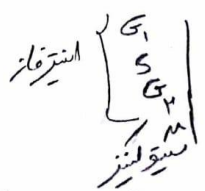 اینترفاز
G₁
S
G₂
M
سیتوکینز